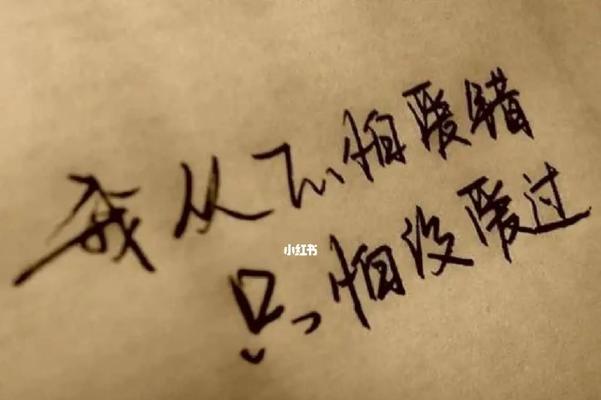 我从不怕爱错
只怕没爱过
小红书